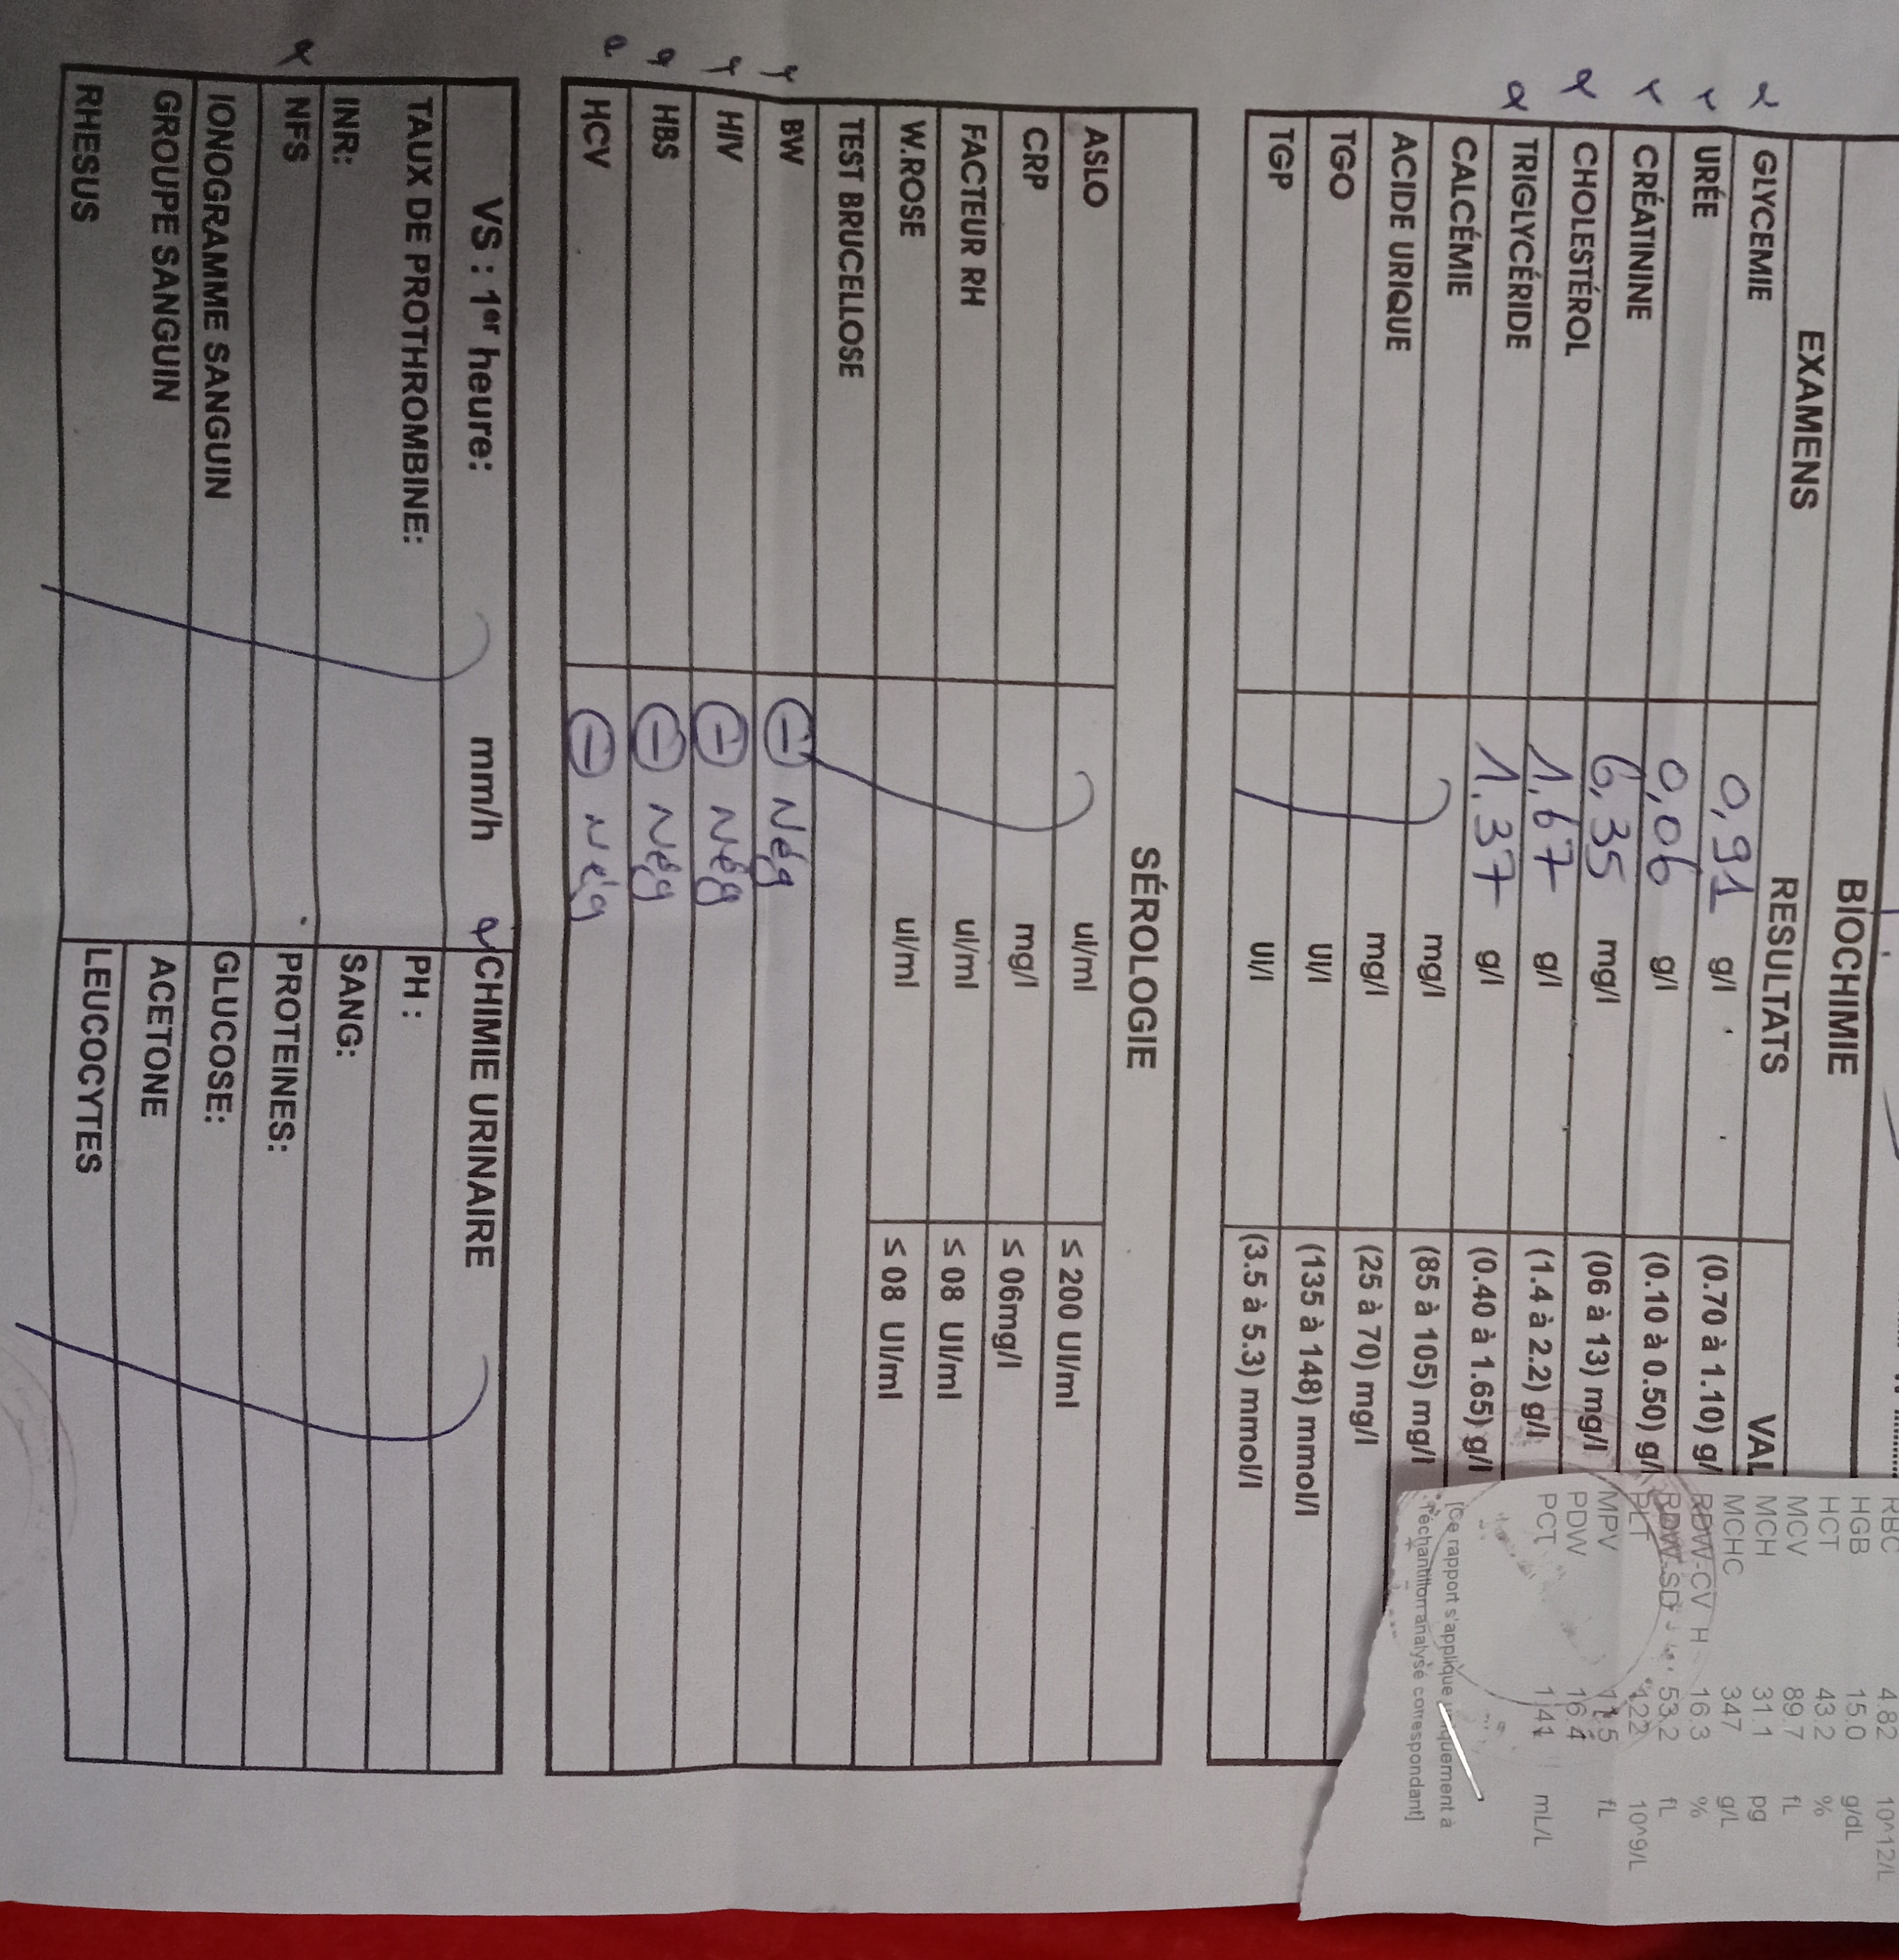 BIOCHIMIE
EXAMENS RESULTATS VAL
GLYCEMIE 0,91 g/l (0.70 à 1.10) g/
URÉE 0,06 g/l (0.10 à 0.50) g/l
CRÉATININE 6,35 mg/l (06 à 13) mg/l
CHOLESTÉROL 1,67 g/l (1.4 à 2.2) g/l
TRIGLYCÉRIDE 1,37 g/l (0.40 à 1.65) g/l
CALCÉMIE mg/l (85 à 105) mg/l
ACIDE URIQUE mg/l (25 à 70) mg/l
TGO UI/l (135 à 148) mmol/l
TGP UI/l (3.5 à 5.3) mmol/l
RBC 4.82 10^12/L
HGB 15.0 g/dL
HCT 43.2 %
MCV 89.7 fL
MCH 31.1 pg
MCHC 347 g/L
RDW-CV H 16.3 %
RDW-SD 53.2 fL
PLT 122 10^9/L
MPV 11.5 fL
PDW 16.4
PCT 1.41 mL/L
[Ce rapport s'applique uniquement à
l'échantillon analysé correspondant]
SÉROLOGIE
ASLO ul/ml ≤ 200 UI/ml
CRP mg/l ≤ 06mg/l
FACTEUR RH ul/ml ≤ 08 UI/ml
W.ROSE ul/ml ≤ 08 UI/ml
TEST BRUCELLOSE
BW ⊖ Nég
HIV ⊖ Nég
HBS ⊖ Nég
HCV ⊖ Nég
VS : 1er heure: mm/h
TAUX DE PROTHROMBINE:
INR:
NFS
IONOGRAMME SANGUIN
GROUPE SANGUIN
RHESUS
CHIMIE URINAIRE
PH :
SANG:
PROTEINES:
GLUCOSE:
ACETONE
LEUCOCYTES